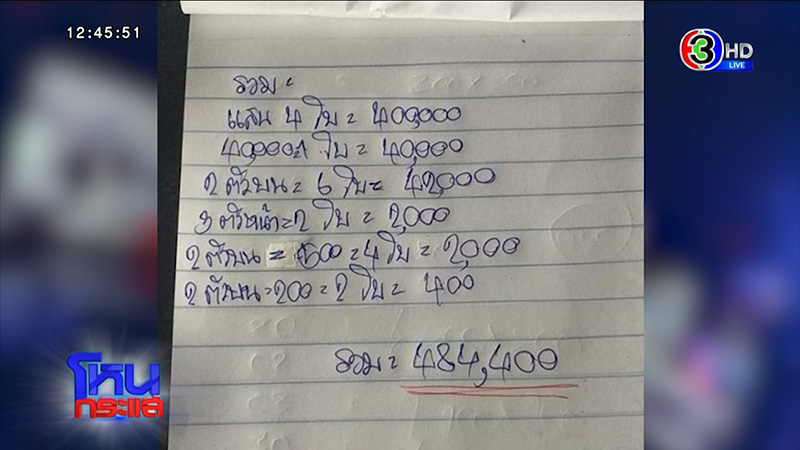 12:45:51
3 HD
LIVE
รวม =
แสน 4 ใบ = 400,000
40,000=1 ใบ = 40,000
2 ตัวบน = 6 ใบ = 40,000
3 ตัวหน้า = 2 ใบ = 2,000
2 ตัวบน = 500 = 4 ใบ = 2,000
2 ตัวบน = 200 = 2 ใบ = 400
รวม = 484,400
โหน
กระแส